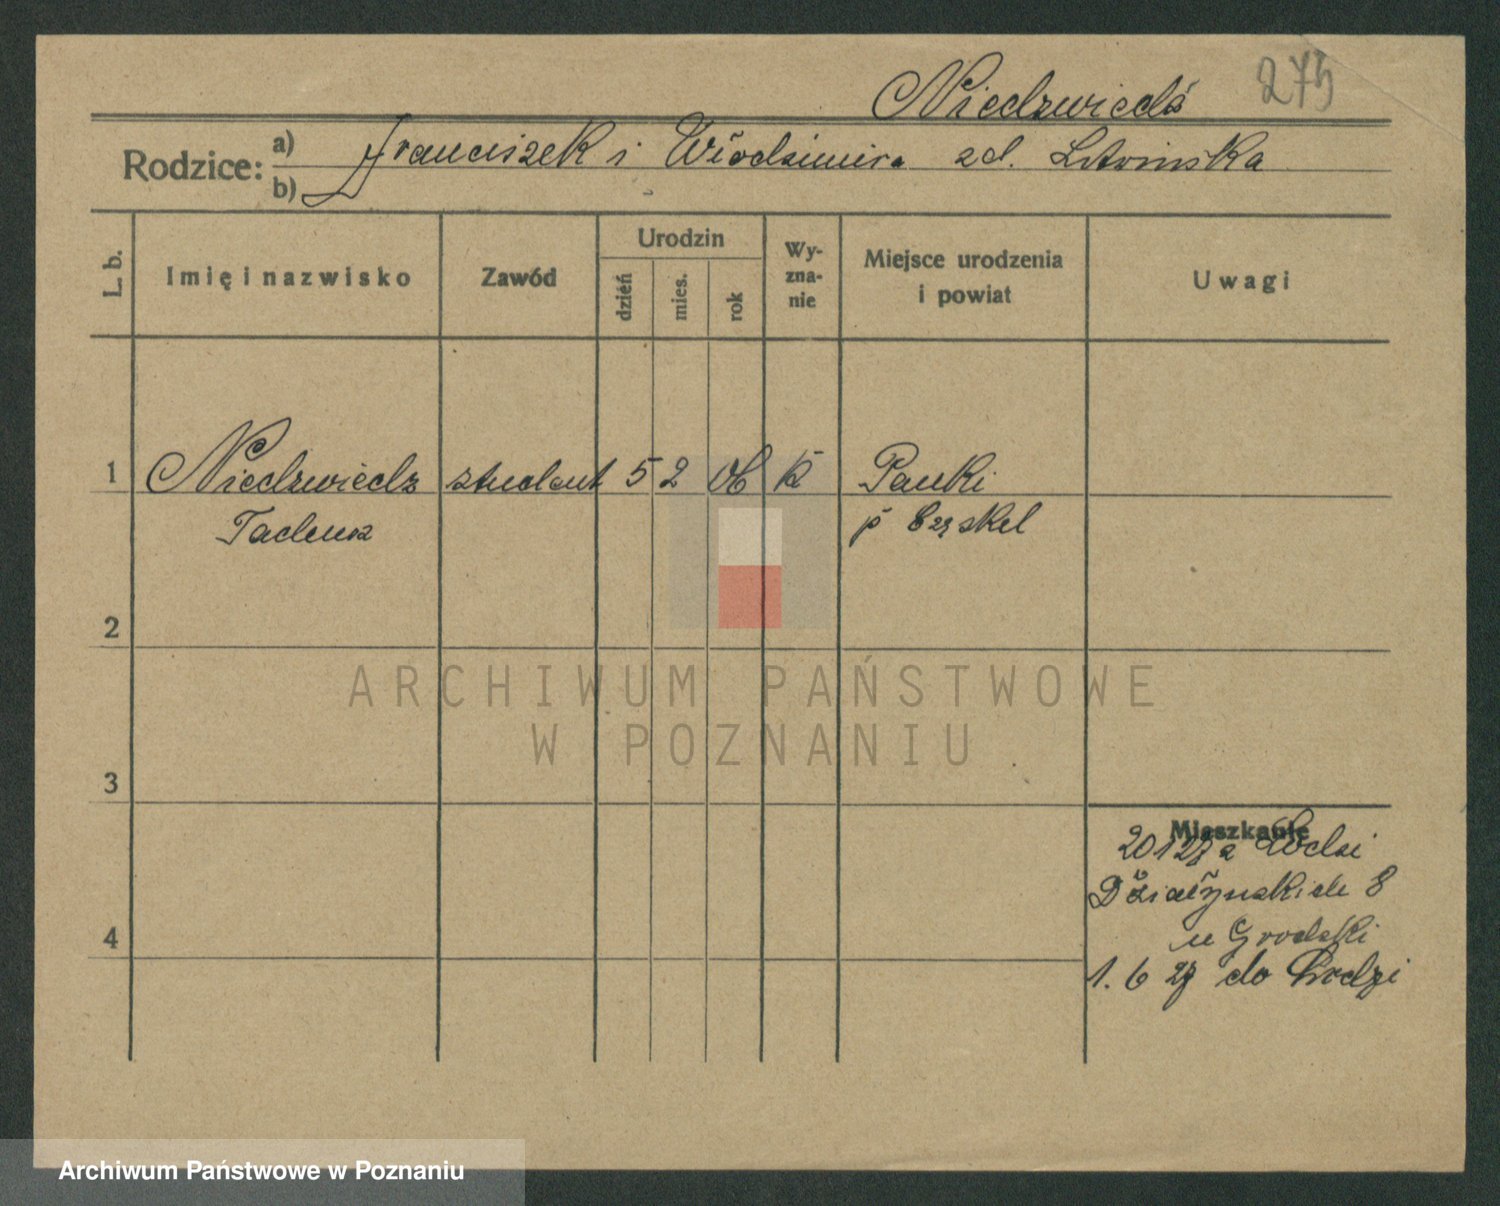 Niedzwiedź 275
Rodzice: a) Franciszek i Włodzimira zd. Litwińska
b)
L. b. Imię i nazwisko Zawód Urodzin dzień mies. rok Wy-zna-nie Miejsce urodzenia i powiat Uwagi
1 Niedzwiedz student 5 2 06 k Panki
Tadeusz p
2
3
Mieszkanie
20 1 27 z Łodzi
Działyńskich 8
u Grodzki
4
1. 6 27 do Łodzi
ARCHIWUM PAŃSTWOWE
W POZNANIU
Archiwum Państwowe w Poznaniu